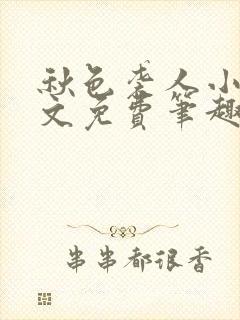 秋色袭人小
文免费笔趣
串串都很香